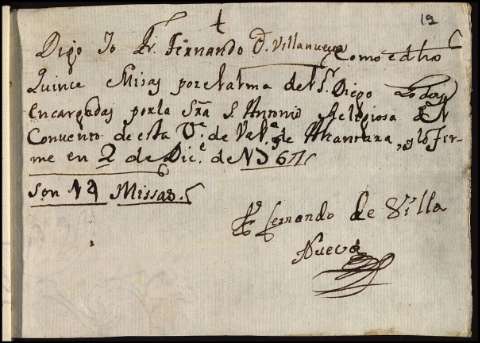 12
Digo Yo Fr. Fernando d. Villanueva Como e dho
Quince Misas por el alma de Dn. Diego
encargadas por la Sra. S. Antonio Religiosa
Convento de esta Va. de Vala. de Alcantara, y lo fir
me en 2 de Dice. de
Son Missas.
Fr. Fernando de Villa
Nueva